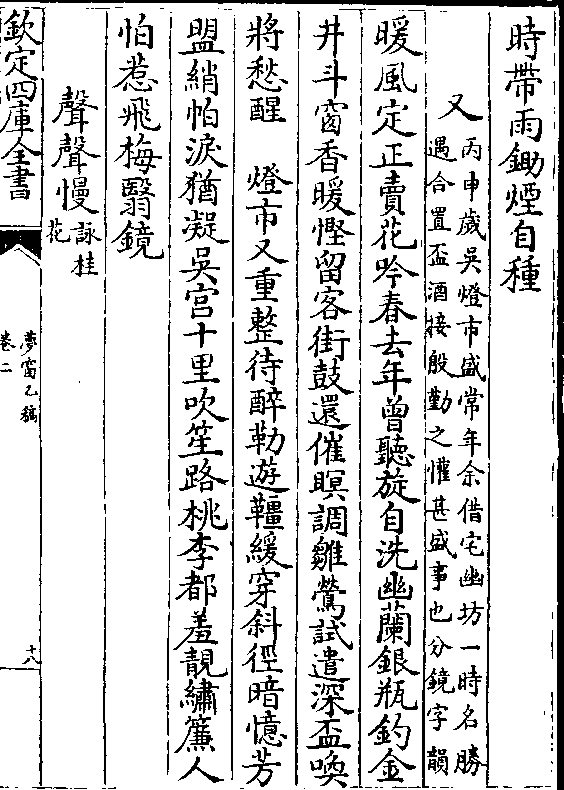 時帶雨鋤煙自種
又丙申歲吳燈市盛常年余借宅幽坊一時名勝
遇合置盃酒接殷勤之懽甚盛事也分鏡字韻
暖風定正賣花吟春去年曾聽旋自洗幽蘭銀瓶釣金
井斗窗香暖慳留客街鼓還催暝調雛鶯試遣深盃喚
將愁醒　燈市又重整待醉勒遊韁緩穿斜徑暗憶芳
盟綃帕淚猶凝吳宮十里吹笙路桃李都羞靚繡簾人
怕惹飛梅翳鏡
聲聲慢詠桂
花
欽定四庫全書
夢窗乙稿
卷二
十八